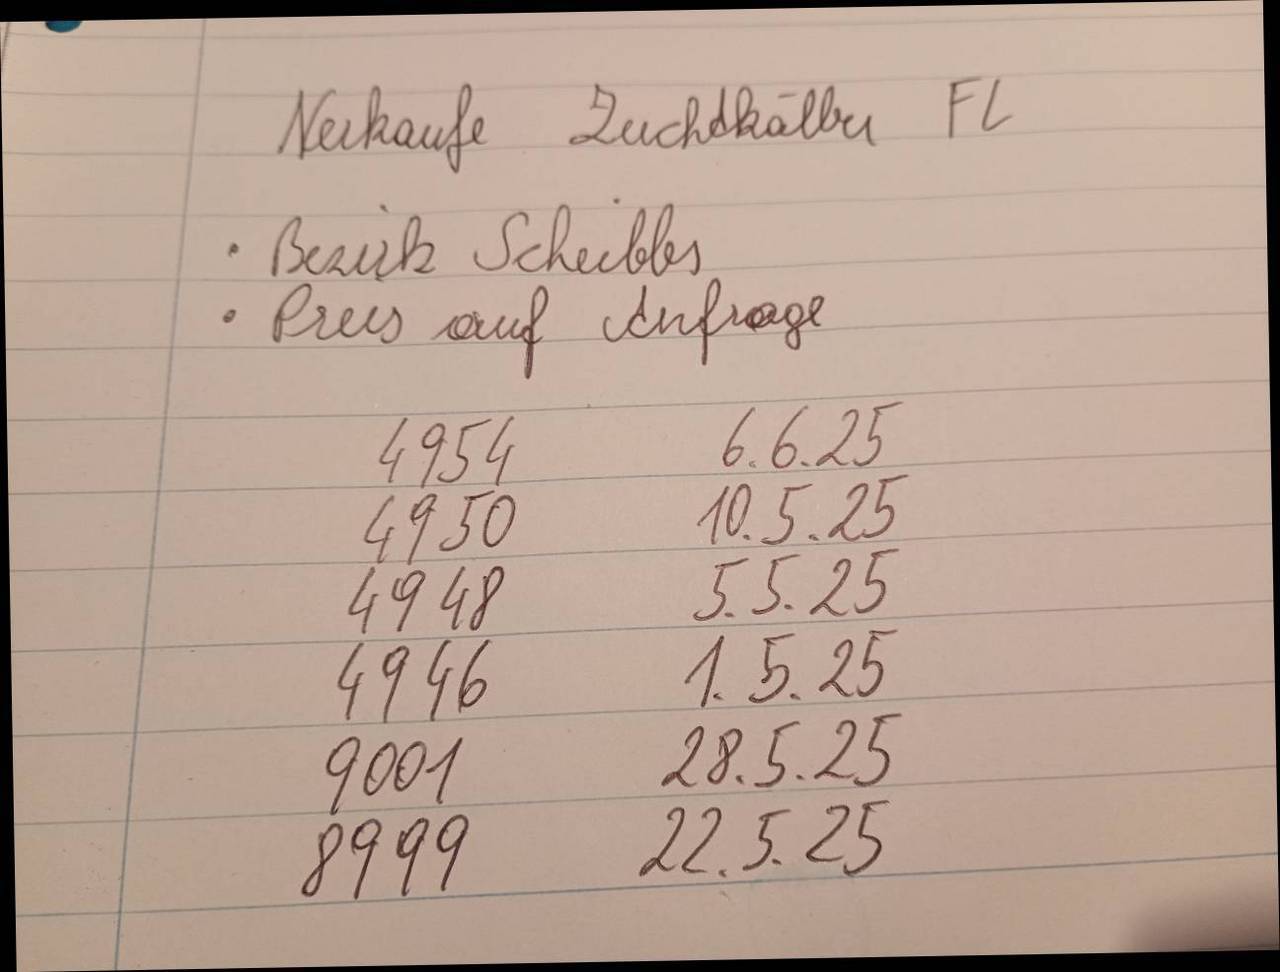 Verkaufe Zuchtkälber FL
• Bezirk Scheibbs
• Preis auf Anfrage
4954 6.6.25
4950 10.5.25
4948 5.5.25
4946 1.5.25
9001 28.5.25
8999 22.5.25